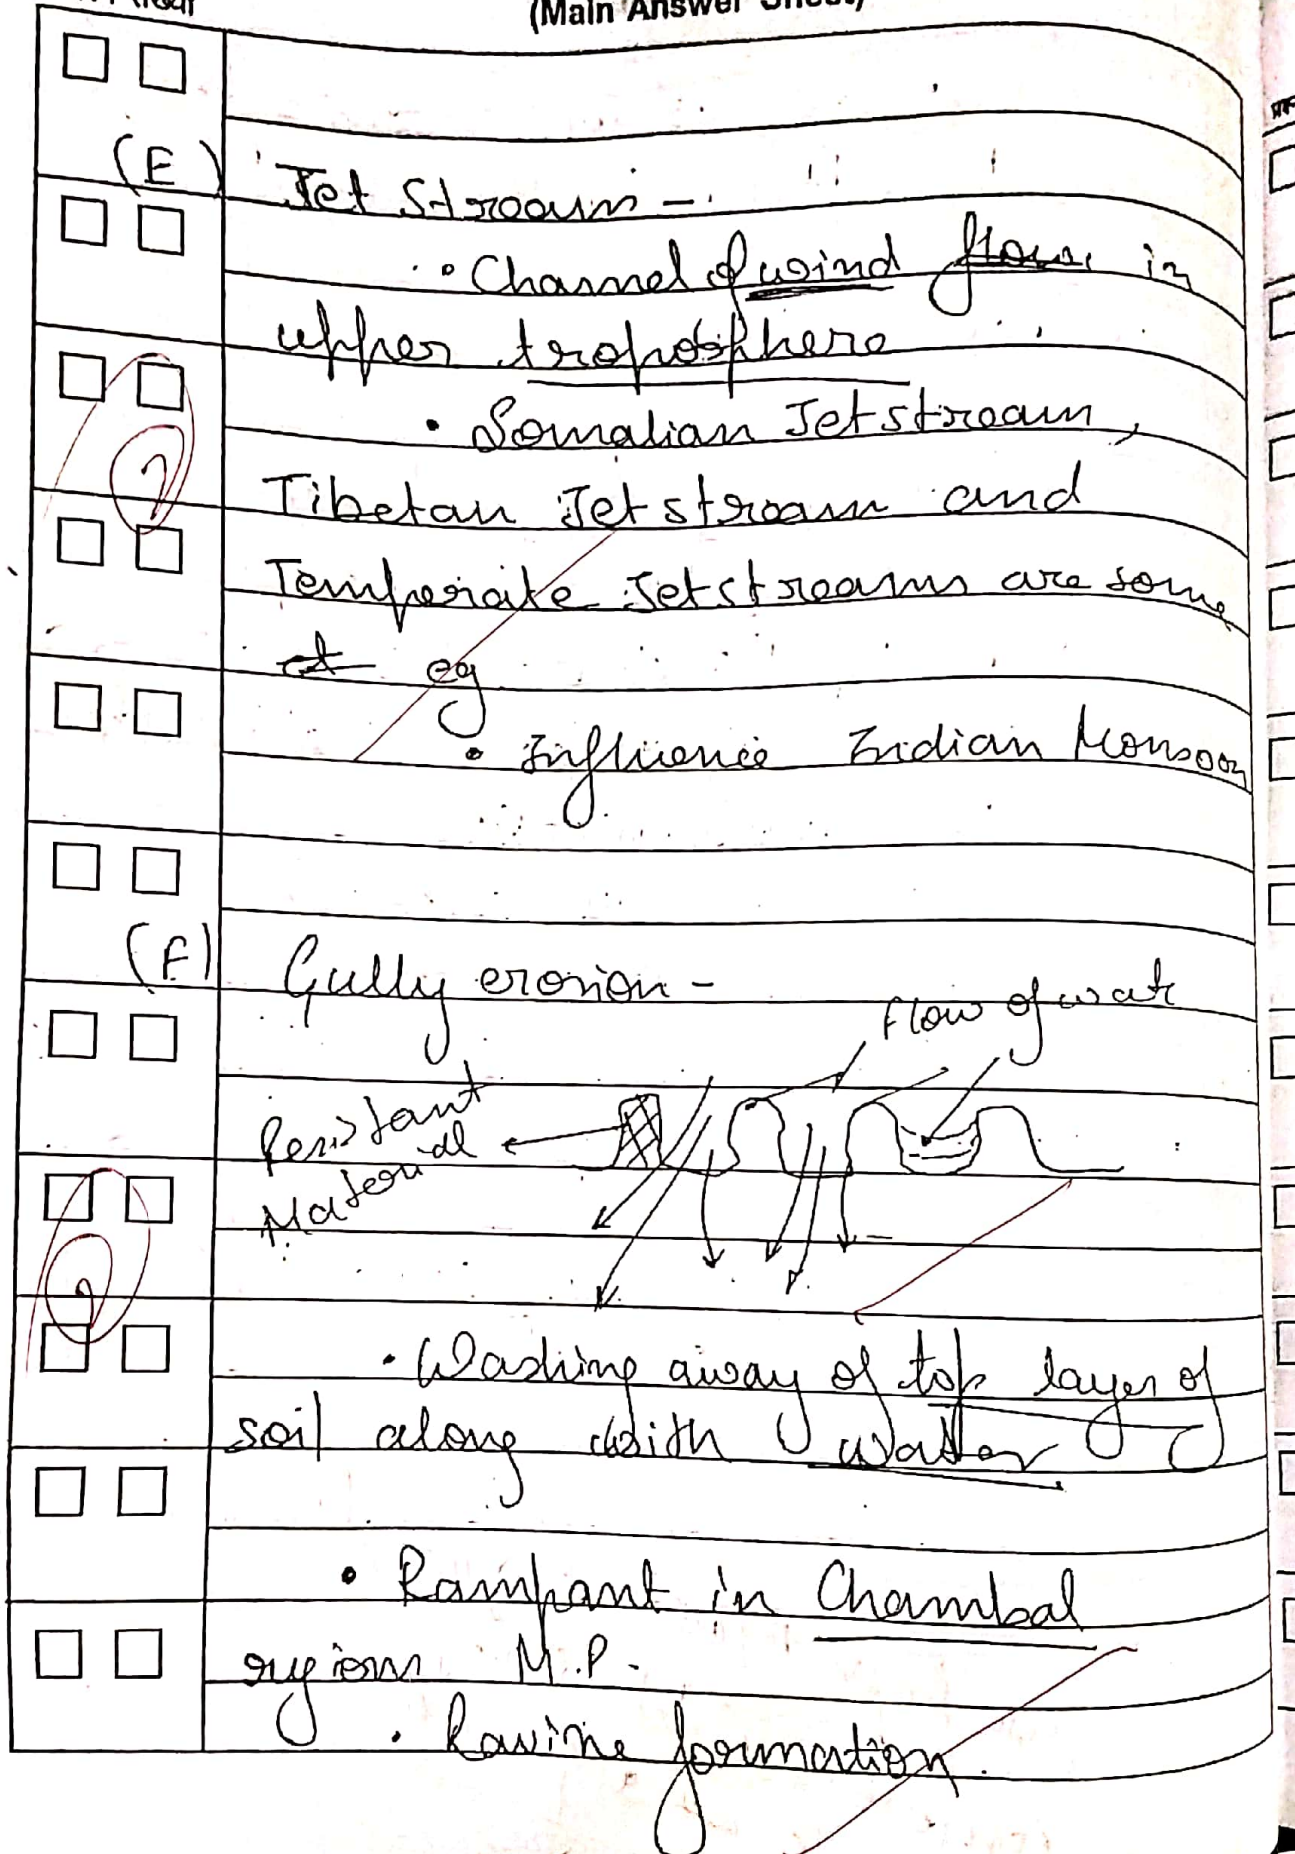 (Main Answer Sheet)
(E) Jet Stream -
• Channel of wind flow in
upper troposphere
• Somalian Jetstream,
Tibetan Jetstream and
Temperate Jetstreams are some
eg
• Influence Indian Monsoon
2
(F) Gully erosion -
Flow of wat
Resistant
Material
2
• Washing away of top layer of
soil along with water
• Rampant in Chambal
regions M.P.
• Ravine formation.